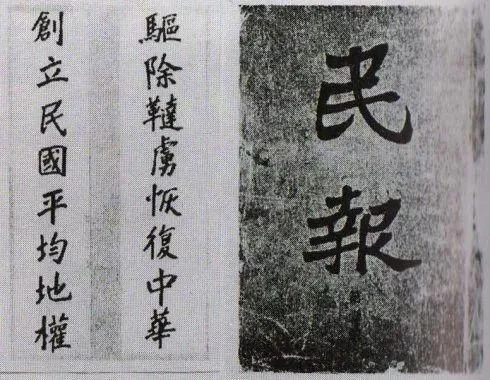 民報
驅除韃虜恢復中華
創立民國平均地權